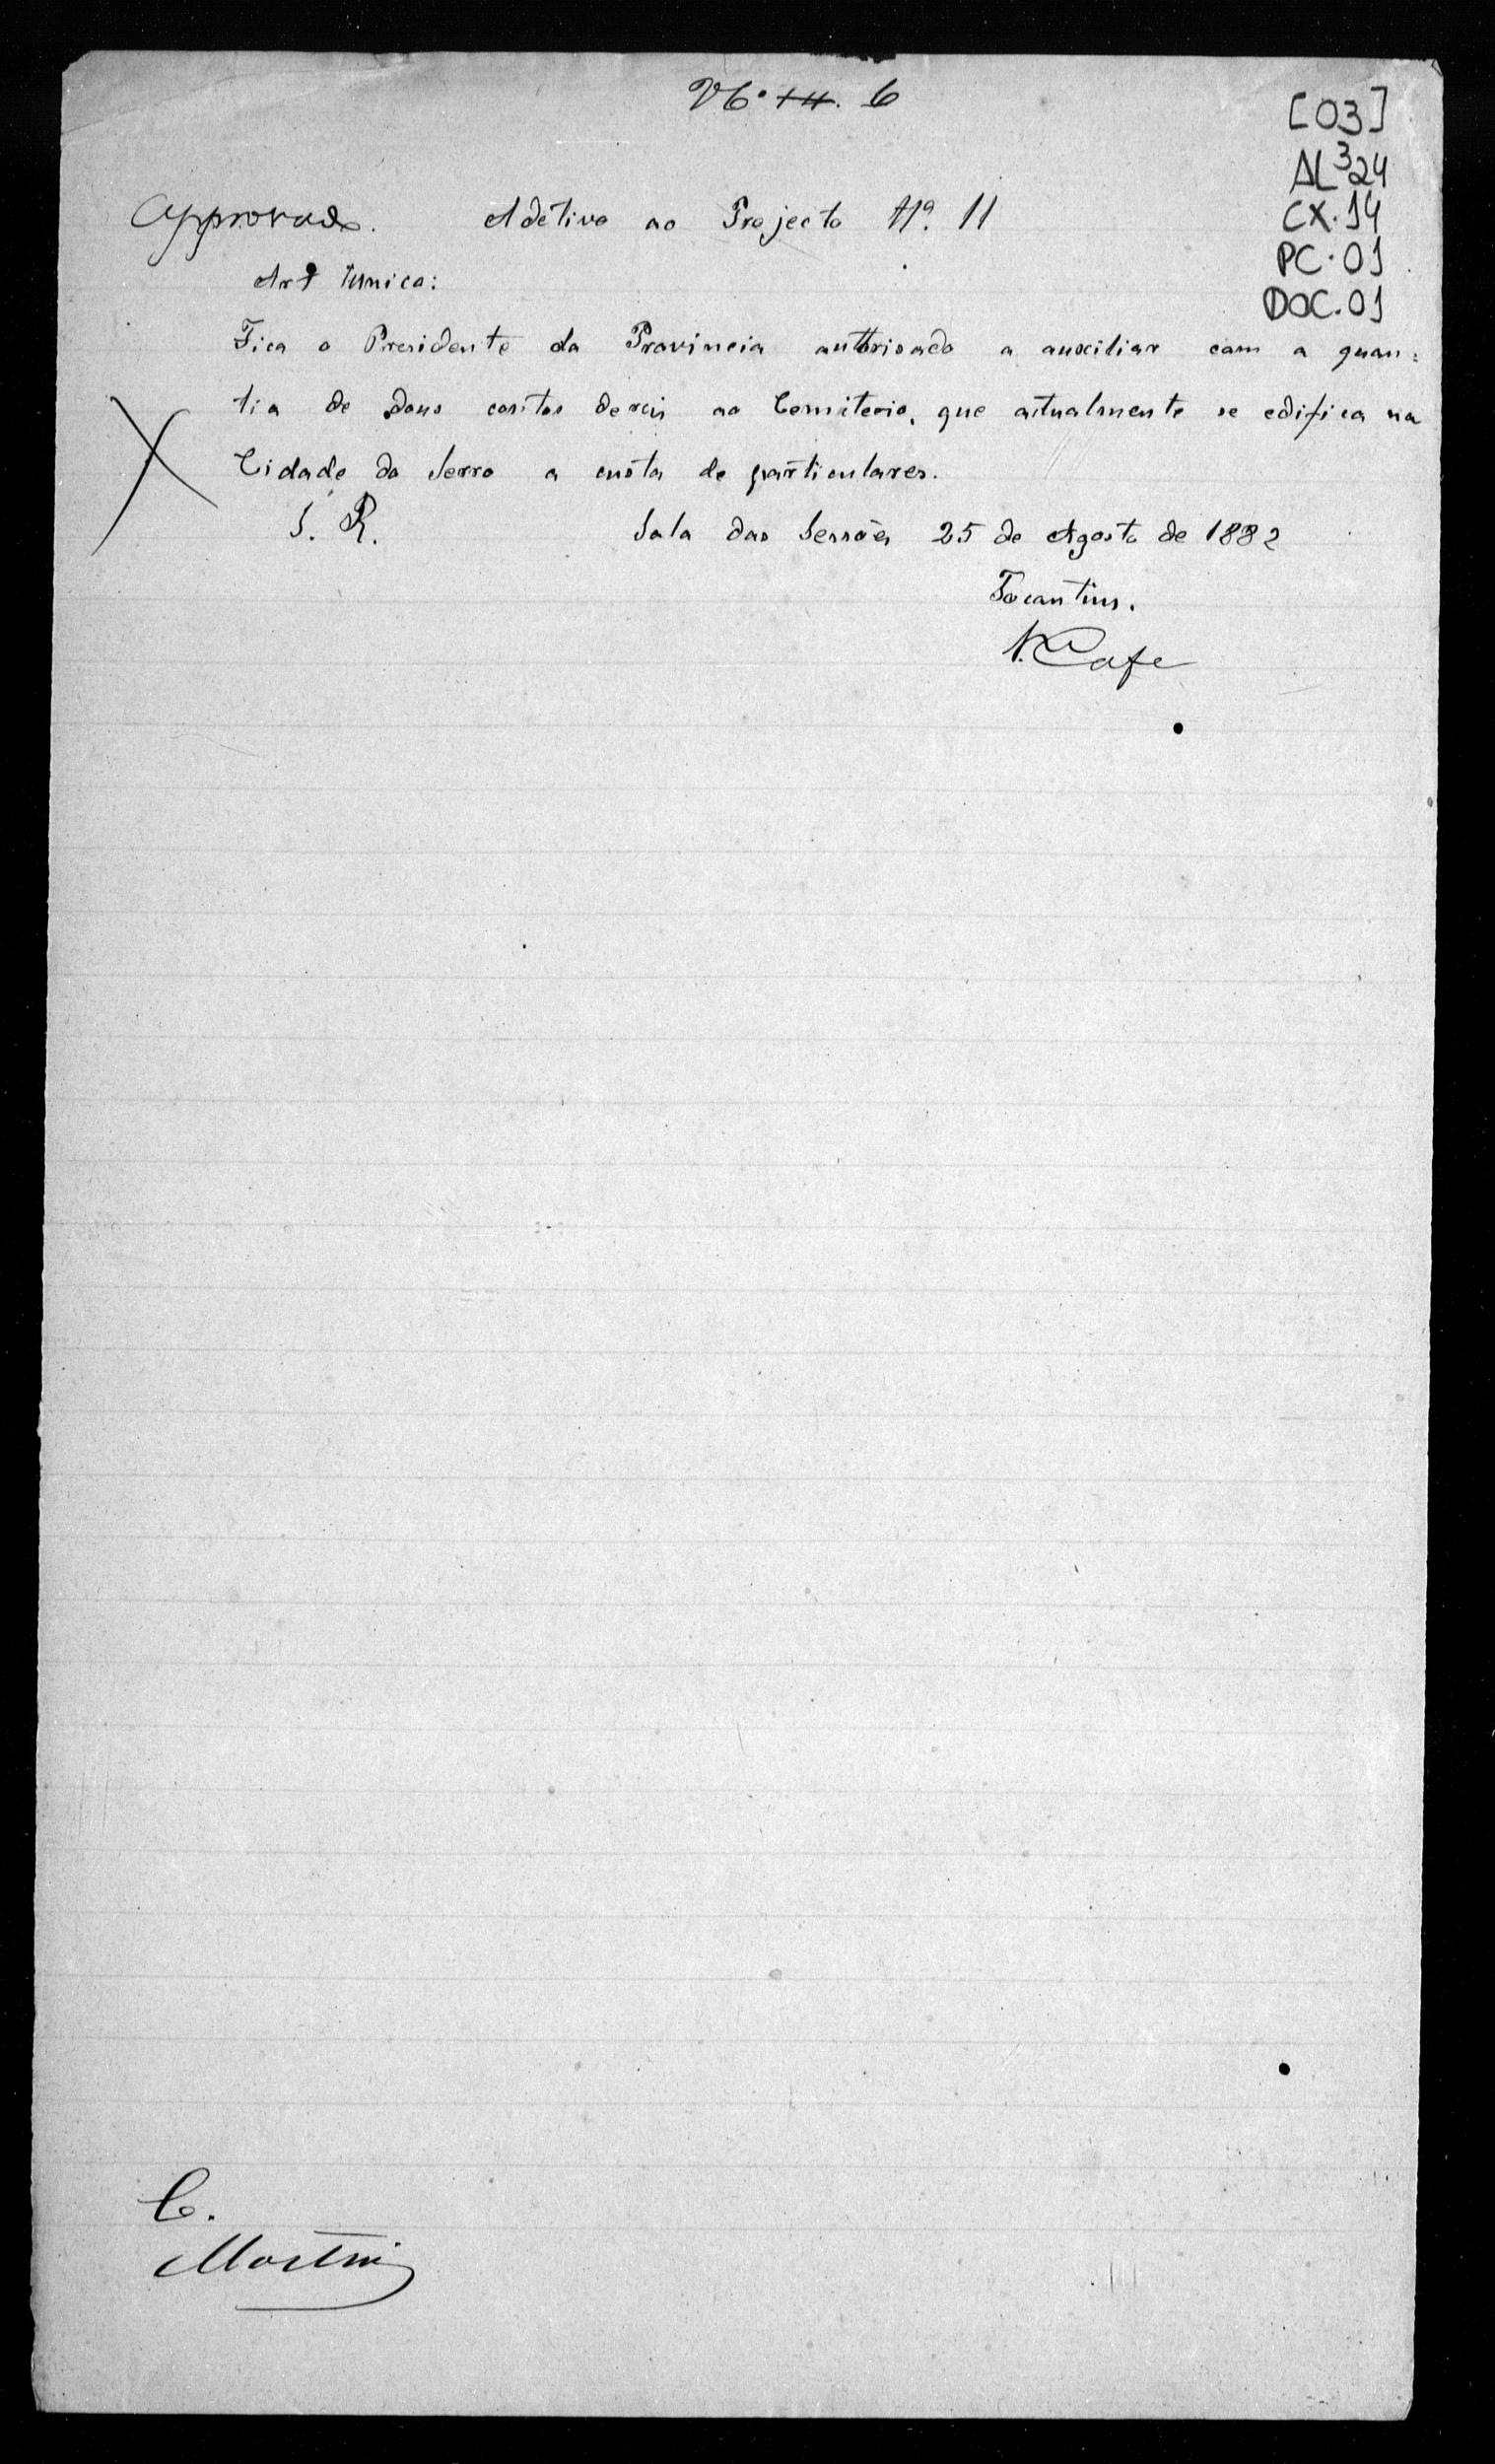 Nº 6
[03]
AL³24
CX.14
PC.01
DOC.01
Approvado. Adetivo ao Projecto Nº. 11
Art Unico:
Fica o Presidente da Provincia authorisado a auxiliar com a quan=
tia de dous contos dereis ao Cemiterio, que actualmente se edifica na
Cidade do Serro a custa de particulares.
S. R. Sala das Sessões 25 de Agosto de 1882
Tocantins.
N. Cafe
C.
Martins